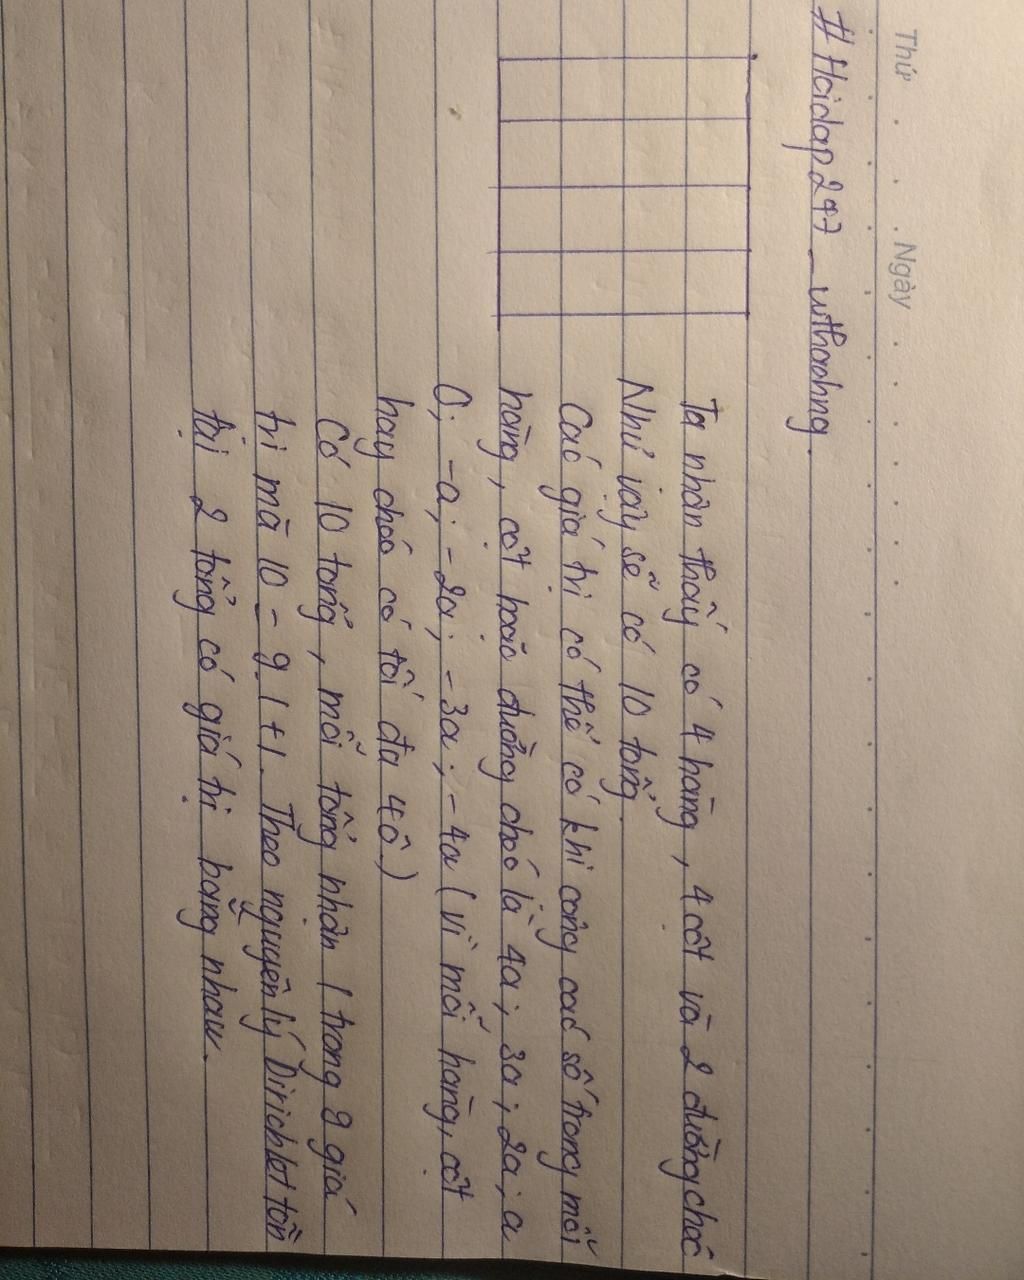 Thứ . . . Ngày . . . . . . .
# Hoidap247 _ wthaohng.
Ta nhận thấy có 4 hàng, 4 cột và 2 đường chéo
Như vậy sẽ có 10 tổng.
Các giá trị có thể có khi cộng các số trong mỗi
hàng, cột hoặc đường chéo là 4a; 3a; 2a; a
0; -a; -2a; -3a; -4a (vì mỗi hàng, cột
hay chéo có tối đa 4 ô.)
Có 10 tổng, mỗi tổng nhận 1 trong 9 giá
trị mà 10 = 9.1+1. Theo nguyên lý Dirichlet tồn
tại 2 tổng có giá trị bằng nhau.